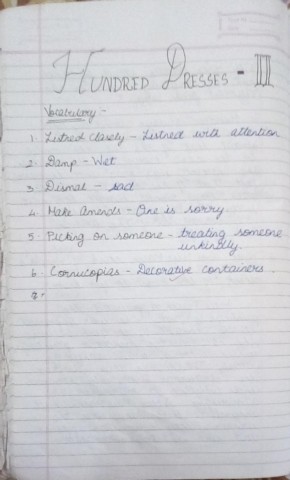 HUNDRED DRESSES - II
Vocabulary -
1. Listned closely - Listned with attention
2. Damp - Wet
3. Dismal - sad
4. Make Amends - One is sorry
5. Picking on someone - treating someone
unkindly.
6. Cornucopias - Decorative containers.
7.